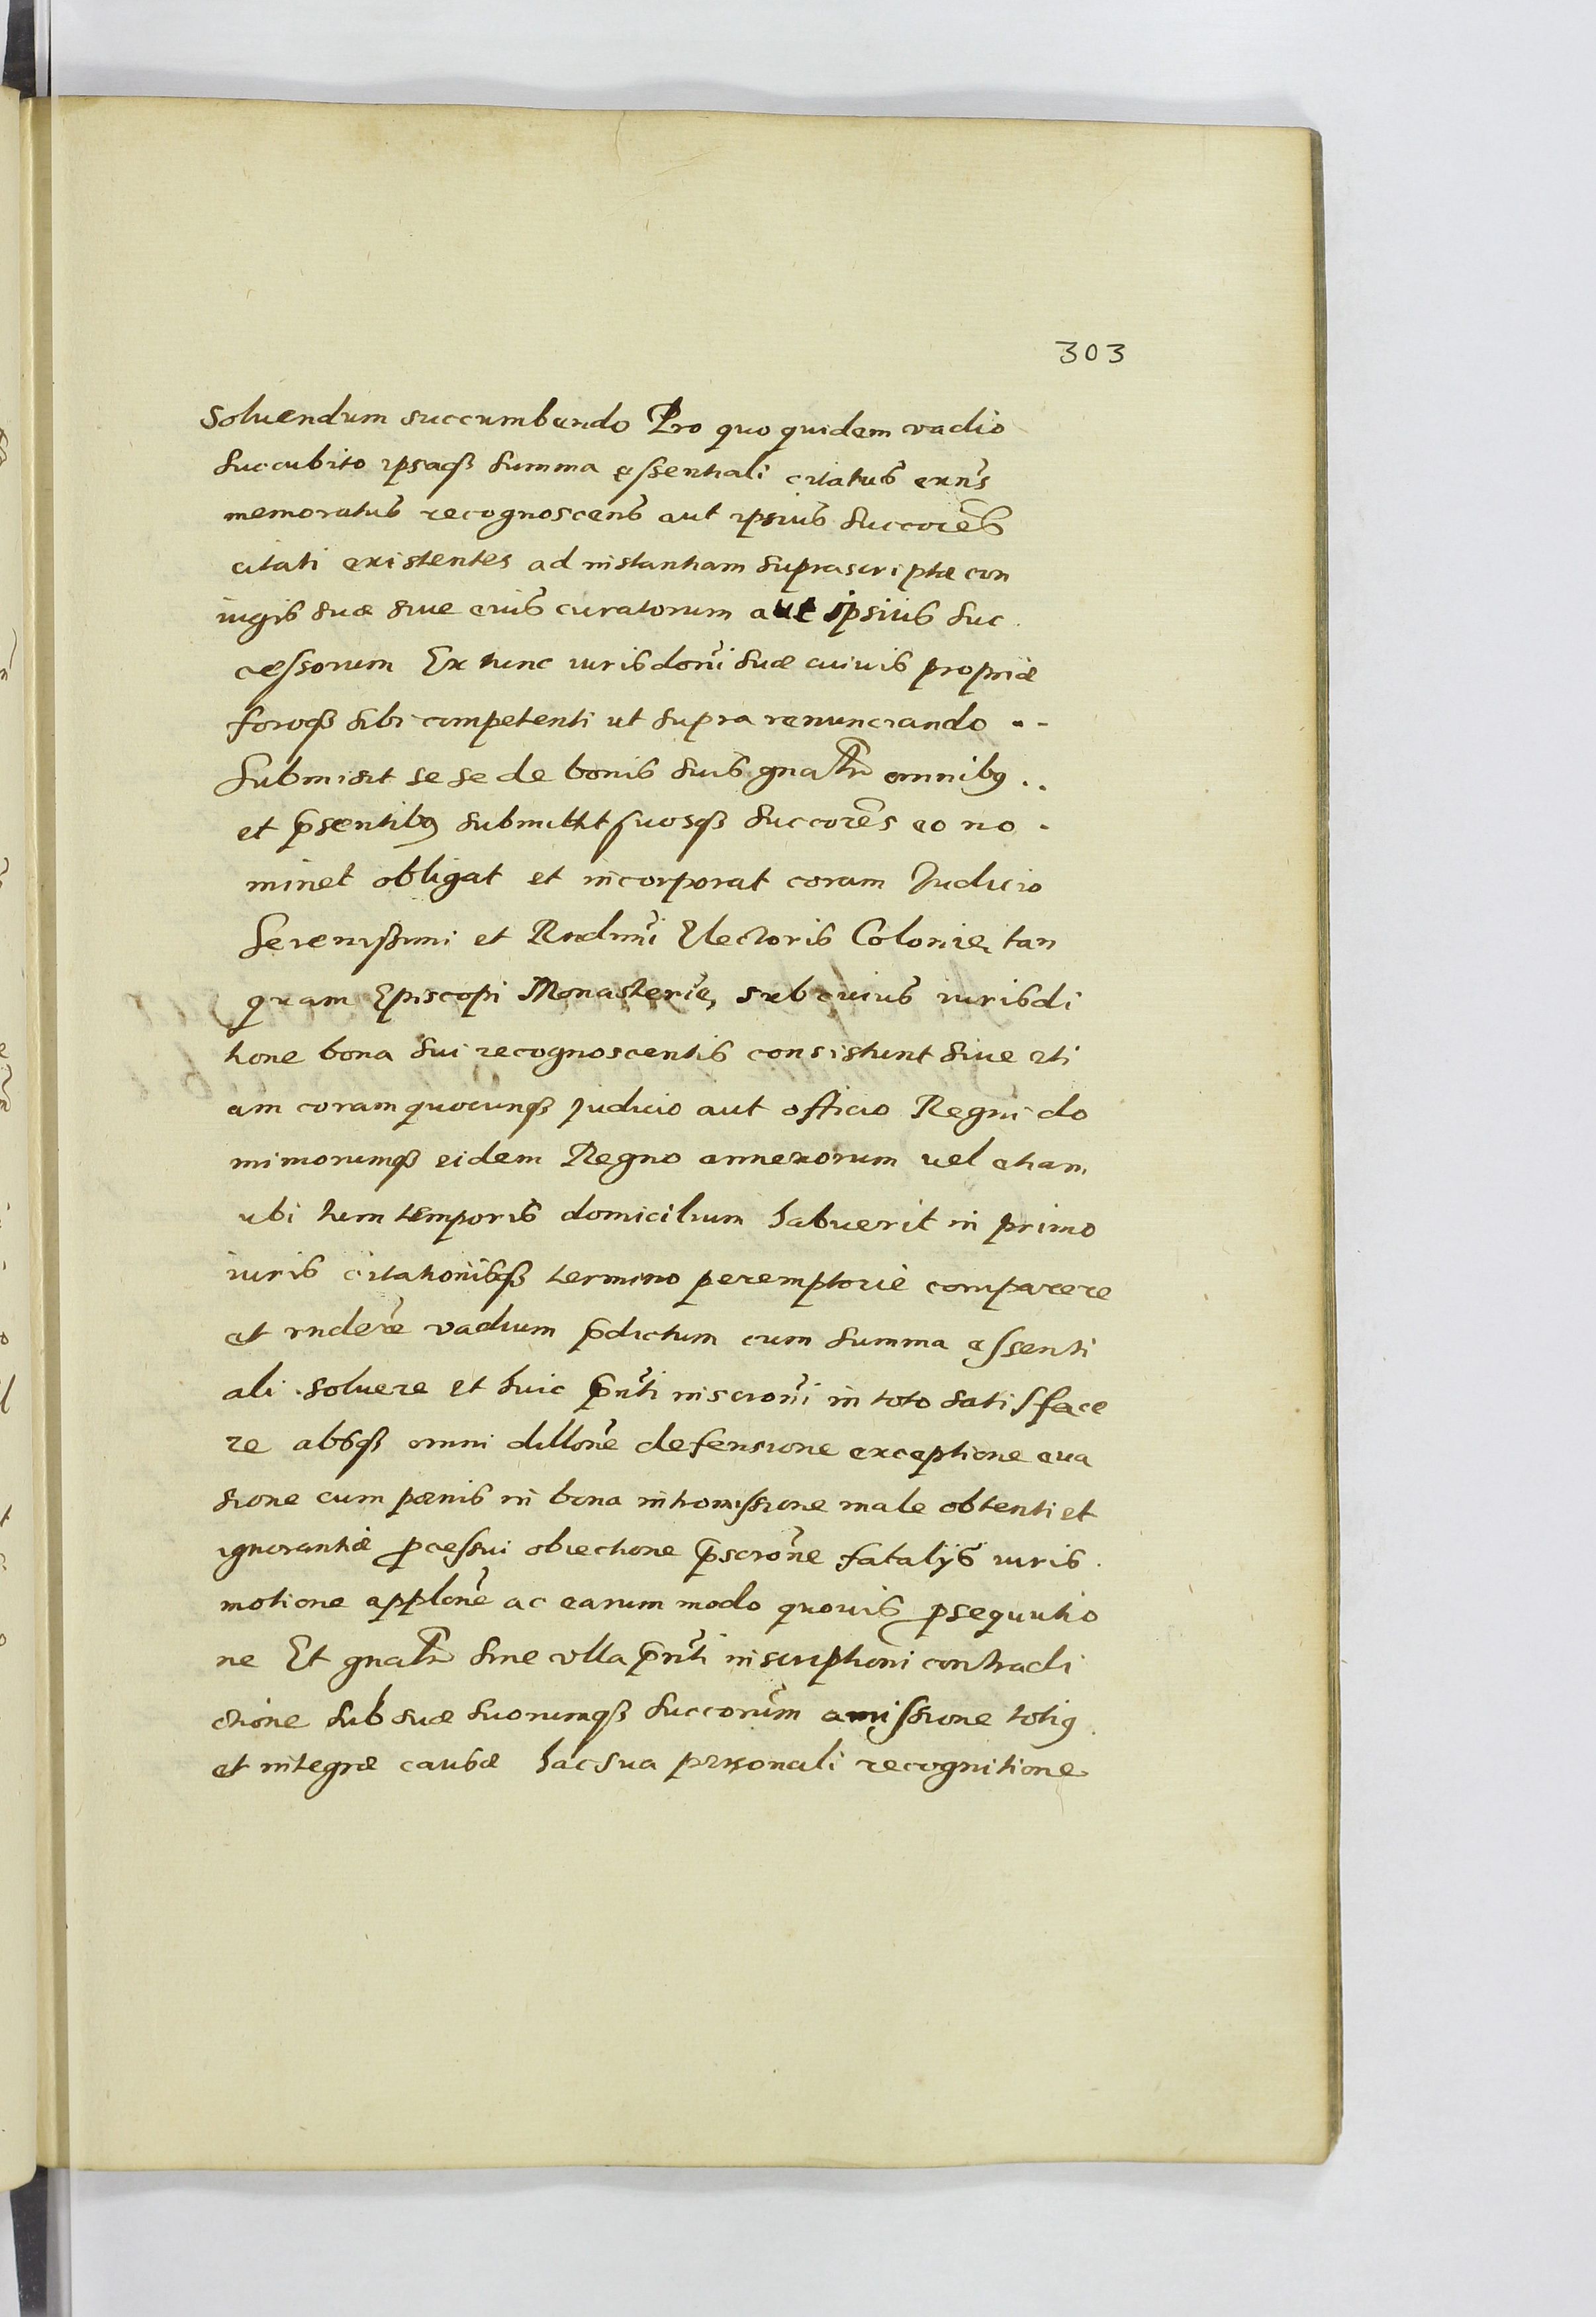 303
Soluendum succumbendo Pro quo quidem vadio
succubito ipsaqꝫ summa essentiali citatus exn̄s
memoratus recognoscens aut ipsius succores̄
citati existentes ad instantiam suprascriptæ con
iugis suæ siue eius curatorum aut ipsius suc
cessorum Ex tunc iurisdoni̅ suæ cuiuis propriæ
foroqꝫ sibi competenti ut supra renunciando
Submisit se se de bonis suis gnalr̄ omnibꝯ
et p̄sentibꝯ submittit suosqꝫ succores̄ eo no
minet obligat et incorporat coram Judicio
Serenissimi et Rndmi̅ Electoris Coloniæ, tan
quam Episcopi Monasteriæ, sub cuius iurisdi
tione bona sui recognoscentis consistunt siue eti
am coram quocunqꝫ judicio aut officio Regni do
miniorumqꝫ eidem Regno annexorum uel etiam
ubi tum temporis domicilium habuerit in primo
iuris citationisqꝫ termino peremptorie comparere
et rndere̅ vadium p̄dictum cum summa essenti
ali soluere et huic p̄nti̅ inscroni̅ in toto satisface
re absqꝫ omni dillone̅ defensione exceptione eua
sione cum pœnis in bona intromissione male obtenti et
ignorantiæ ꝓcessui obiectione p̄scrone̅ fatalijs iuris
motione applone̅ ac earum modo quouis ꝓsequutio
ne Et gnalr̄ sine ulla p̄nti̅ inscriptioni contradi
ctione sub suæ suorumqꝫ succorum̅ amissione totiꝯ
et integræ causæ hac sua personali recognitione